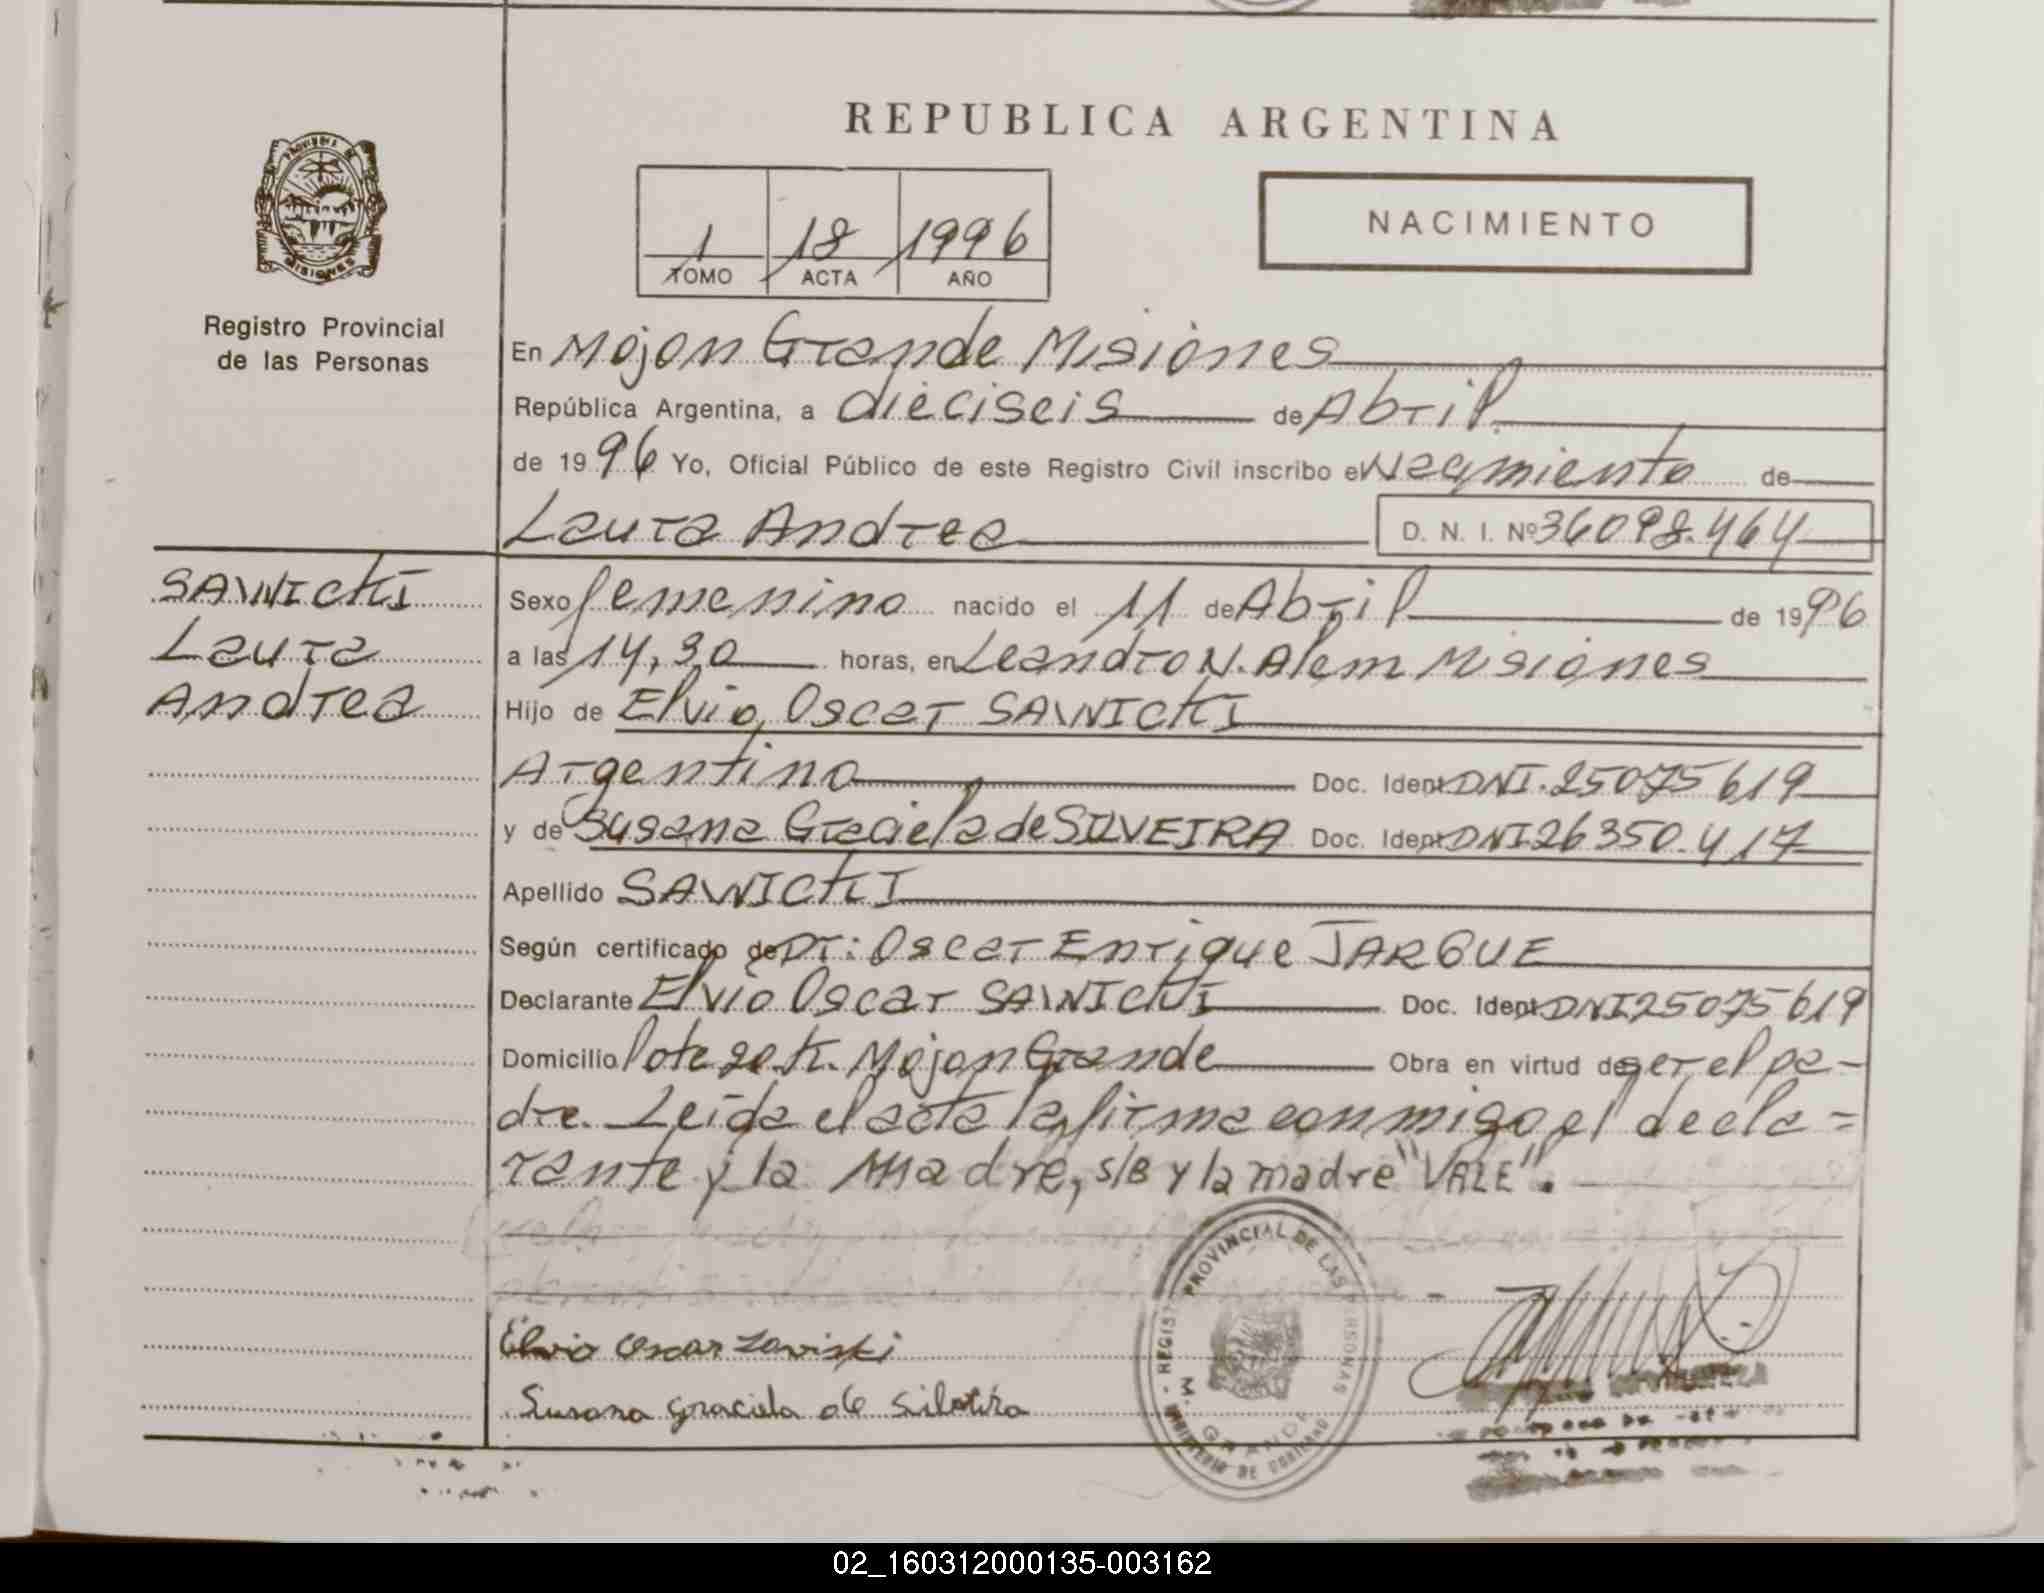 REPUBLICA ARGENTINA
PROVINCIA DE
MISIONES
Registro Provincial
de las Personas
1 18 1996
TOMO ACTA AÑO
NACIMIENTO
En Mojon Grande Misiones
República Argentina, a dieciseis de Abril
de 1996 Yo, Oficial Público de este Registro Civil inscribo el Nacimiento de
Laura Andrea D. N. I. Nº 36098.464
SAWICKI
Laura
Andrea
Sexo femenino nacido el 11 de Abril de 1996
a las 14,30 horas, en Leandro N. Alem Misiones
Hijo de Elvio Oscar SAWICKI
Argentino Doc. Ident DNI. 25075619
y de Susana Graciela de SILVEIRA Doc. Ident DNI 26350.417
Apellido SAWICKI
Según certificado de Dr: Oscar Enrique JARQUE
Declarante Elvio Oscar SAWICKI Doc. Ident DNI 25075619
Domicilio lote K. Mojon Grande Obra en virtud de ser el pa-
dre. Leída el acta la firma conmigo el decla=
rante y la Madre, s/B y la madre "VALE".
Elvio Oscar Zaviski
Susana Graciela de Silveira
REGISTRO PROVINCIAL DE LAS PERSONAS
M. GRANDE
MINISTERIO DE GOBIERNO
02_160312000135-003162